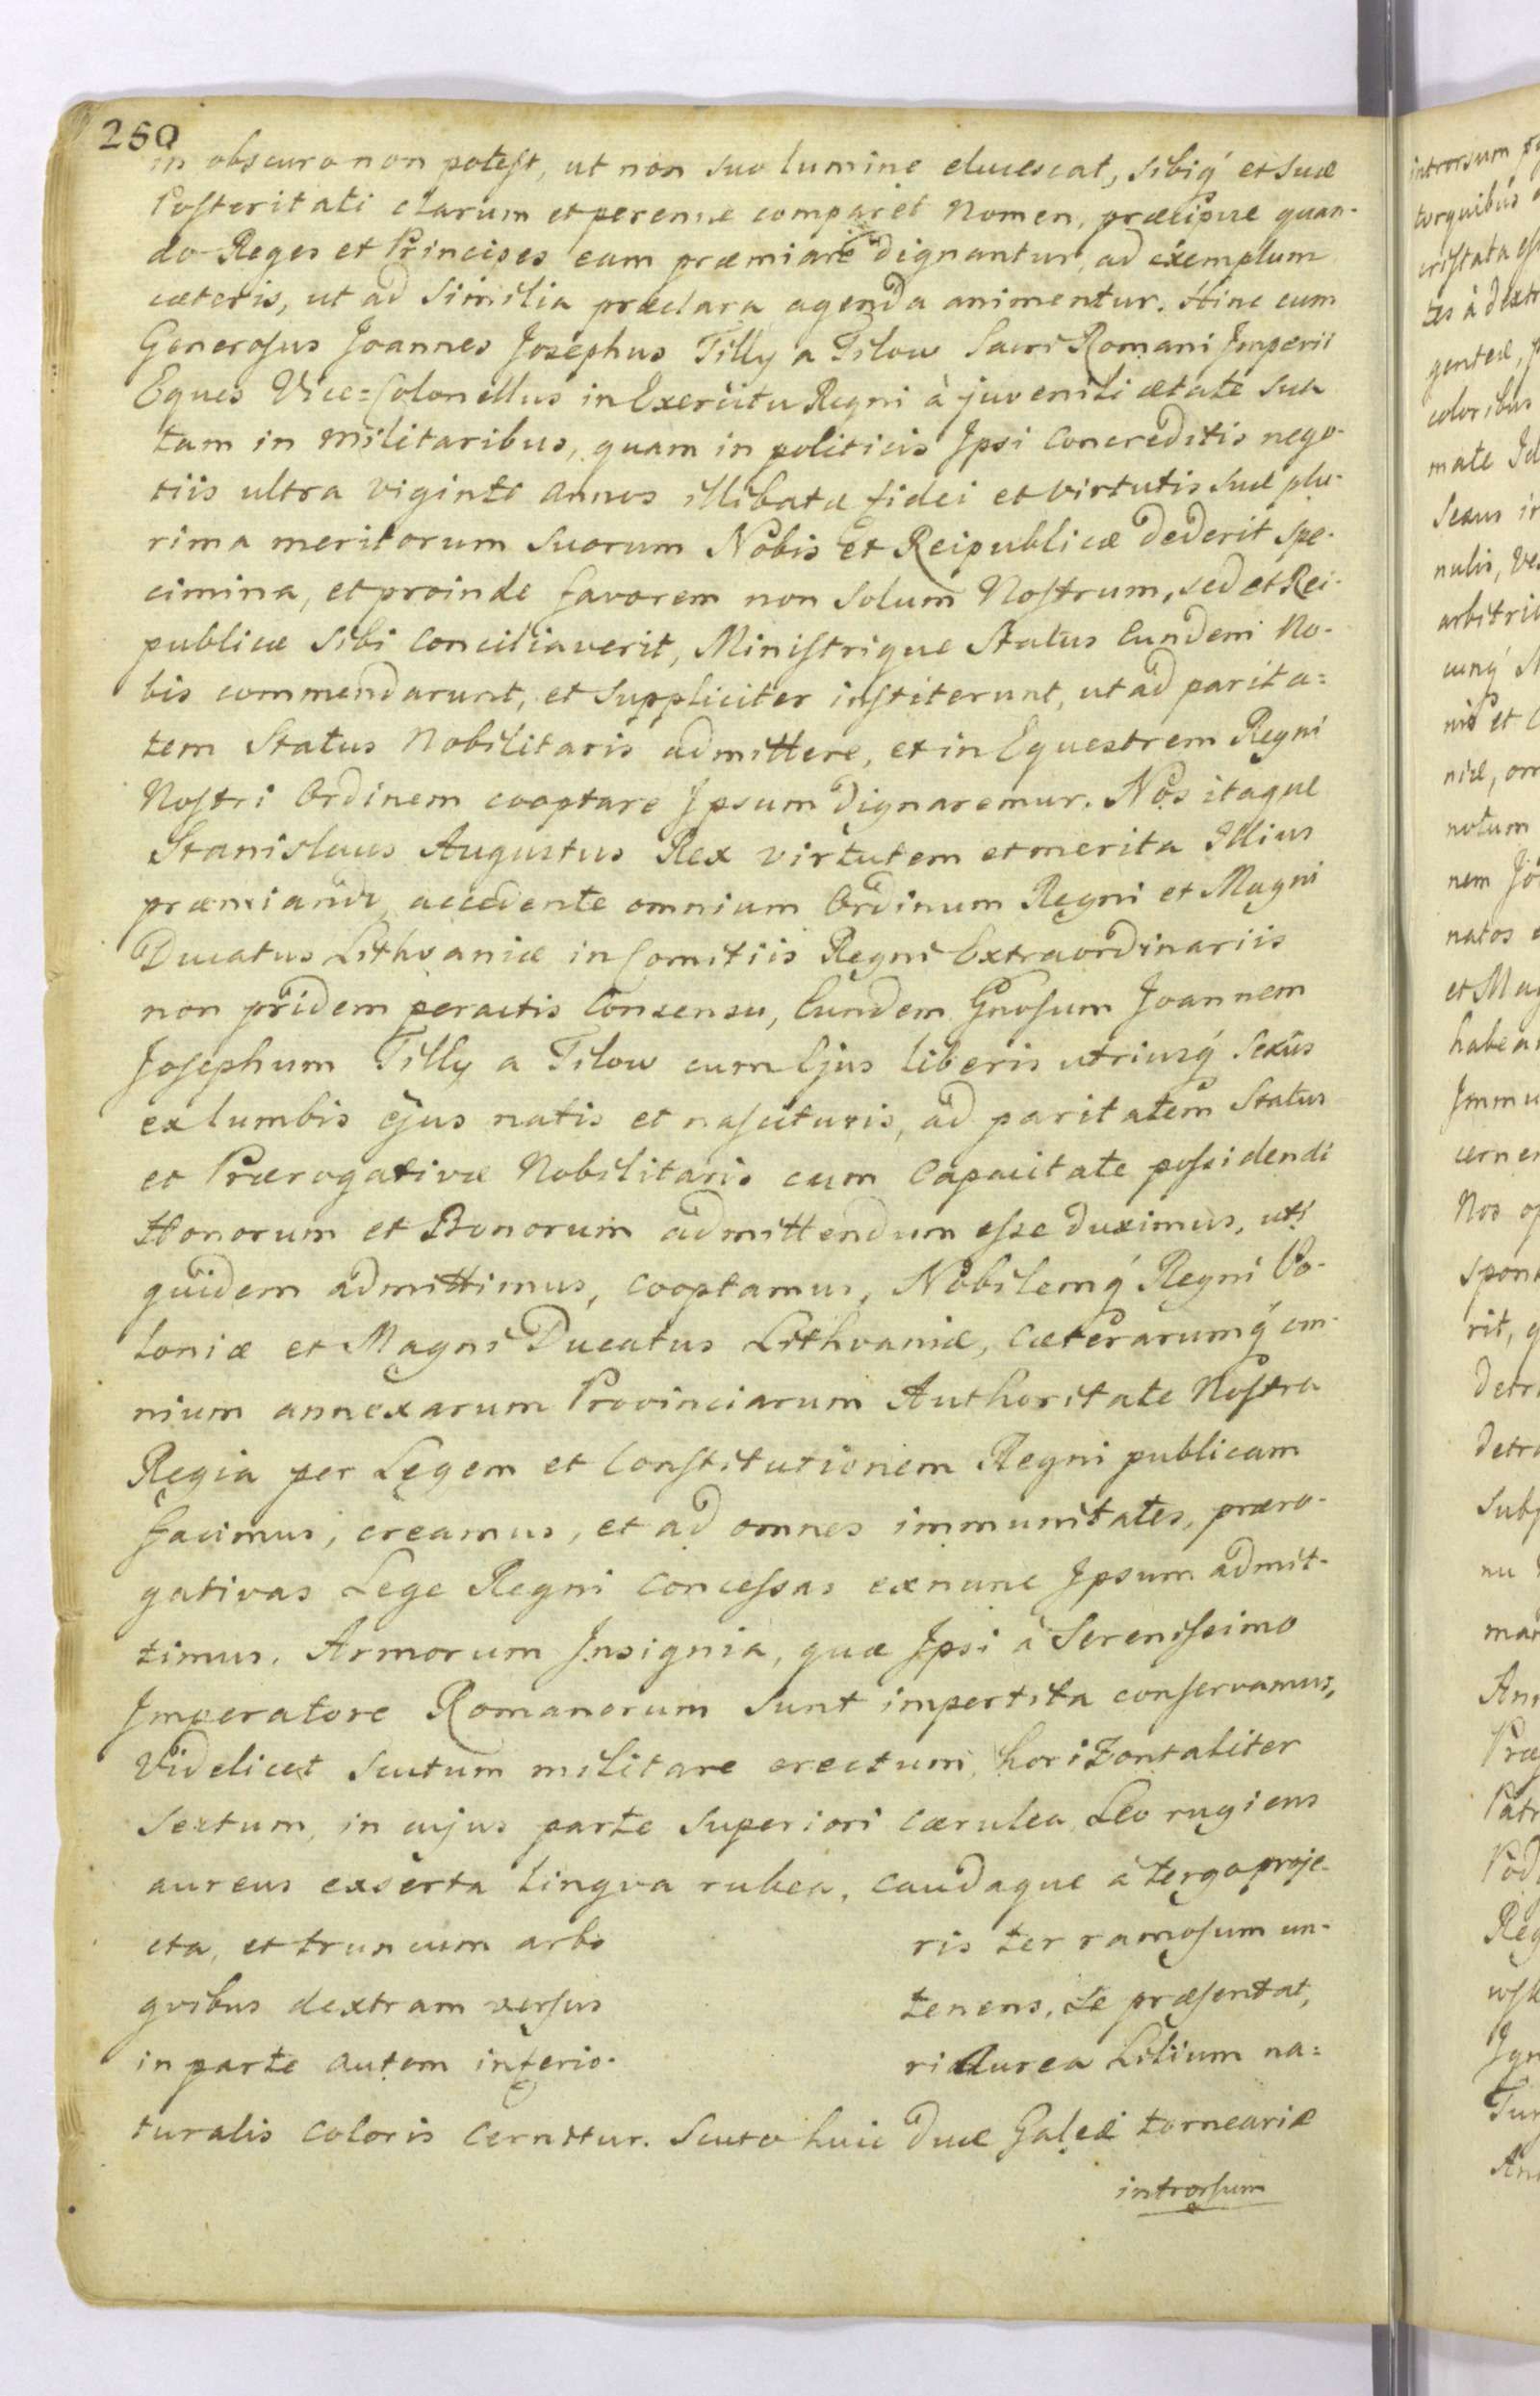 250
in obscuro non potest, ut non suo lumine elucescat, sibiq́ et suæ
Posteritati clarum et perenne comparet Nomen, præcipue quan-
do Reges et Principes eam præmiare dignantur, ad exemplum
cæteris, ut ad similia præclara agenda animentur. Hinc cum
Generosus Joannes Josephus Tilly a Tilow Sacri Romani Imperii
Eques Vice=Colonellus in Exercitu Regni à juvenili ætate sua
tam in militaribus, quam in politicis Ipsi Concreditis nego-
tiis ultra viginti annos illibatæ fidei et virtutis suæ plu-
rima meritorum suorum Nobis et Reipublicæ dederit spe-
cimina, et proinde favorem non solum Nostrum, sed et Rei-
publicæ sibi Conciliaverit, Ministrique Status Eundem No-
bis commendarunt, et suppliciter institerunt, ut ad parita=
tem Status Nobilitaris admittere, et in Equestrem Regni
Nostri Ordinem cooptare Ipsum dignaremur. Nos itaque
Stanislaus Augustus Rex virtutem et merita Illius
præmiandi, accedente omnium Ordinum Regni et Magni
Ducatus Lithvaniæ in Comitiis Regni Extraordinariis
non pridem peractis Consensu, Eundem Gnosum Joannem
Josephum Tilly a Tilow cum Ejus liberis utriusq́ sexûs
ex lumbis ejus natis et nascituris, ad paritatem Status
et Prærogativæ Nobilitaris cum Capacitate possidendi
Honorum et Bonorum admittendum esse duximus, uti
quidem admittimus, cooptamus, Nobilemq́ Regni Po-
loniæ et Magni Ducatus Lithvaniæ, Cæterarumq́ om-
nium annexarum Provinciarum Authoritate Nostra
Regia per Legem et Constitutionem Regni publicam
facimus, creamus, et ad omnes immunitates, præro-
gativas Lege Regni Concessas exnunc Ipsum admit-
timus. Armorum Insignia, quæ Ipsi à Serenissimo
Imperatore Romanorum sunt impertita conservamus,
Videlicet Scutum militare erectum, horizontaliter
sectum, in cujus parte superiori cærulea Leo rugiens
aureus exserta lingva rubea, caudaque à tergo proje-
cta, et truncum arbo ris ter ramosum un-
gvibus dextram versus tenens, se præsentat,
in parte autem inferio- ri Aurea Lilium na=
turalis Coloris Cernitur. Scuto huic duæ Galeæ torneariæ
introrsum